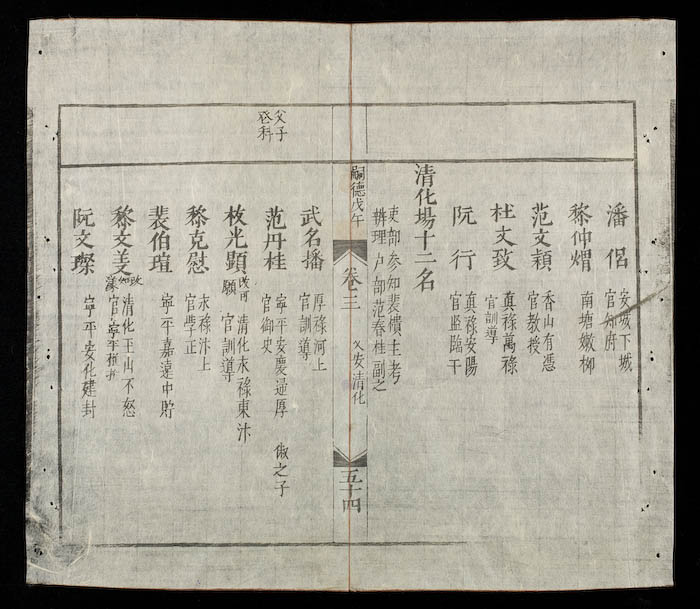 潘侶 安城下城
官知府
黎仲熠 南塘嫩柳
范文穎 香山有憑
官教授
杜文致 真祿萬祿
官訓導
阮行 真祿安陽
官監臨干
清化場十二名
吏部參知裴樻主考
辨理户部范春桂副之
嗣德戊午
卷三
乂安清化
五十四
武名播 厚祿河上
官訓導
父子
登科
范丹桂 寧平安慶 厚 俶之子
官御史
枚光顯 改可願
清化永祿東汴
官訓導
黎克慰 永祿汴上
官學正
裴伯瑄 寧平嘉遠中貯
黎文美 改如
清化玉山不怒
官寧平
阮文璨 寧平安化建封